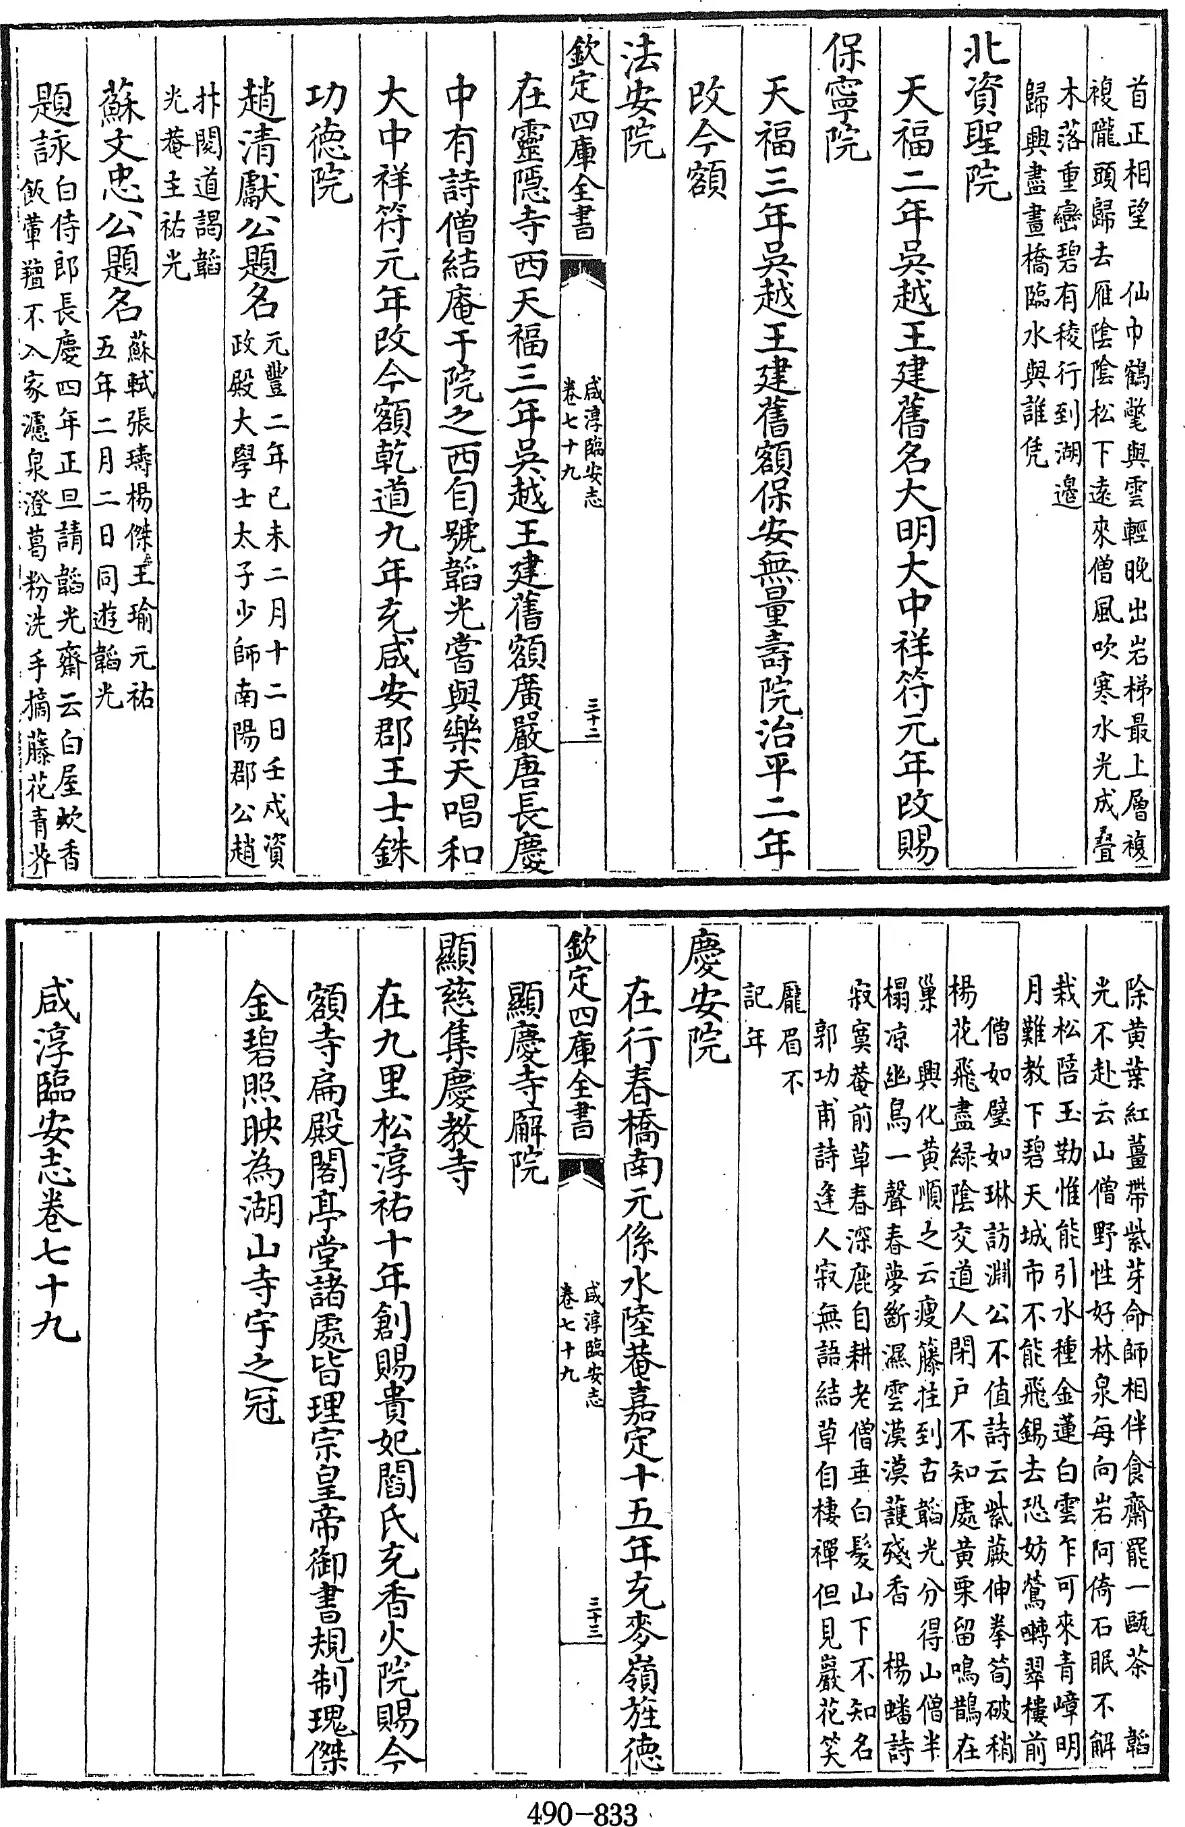 首正相望　仙巾鶴氅與雲輕晚出岩梯最上層複
複隴頭歸去雁陰陰松下遠來僧風吹寒水光成疊
木落重巒碧有稜行到湖邉
歸興盡畫橋臨水與誰凭
北資聖院
天福二年吳越王建舊名大明大中祥符元年改賜
保寧院
天福三年吳越王建舊額保安無量壽院治平二年
改今額
法安院
欽定四庫全書
咸淳臨安志
卷七十九
三十二
在靈隱寺西天福三年吳越王建舊額廣嚴唐長慶
中有詩僧結庵于院之西自號韜光嘗與樂天唱和
大中祥符元年改今額乾道九年充咸安郡王士銖
功德院
趙清獻公題名元豐二年已未二月十二日壬戍資
政殿大學士太子少師南陽郡公趙
抃閱道謁韜
光菴主祐光
蘇文忠公題名蘇軾張璹楊傑王瑜元祐
五年二月二日同遊韜光
題詠白侍郎長慶四年正旦請韜光齋云白屋炊香
飯葷羶不入家濾泉澄葛粉洗手摘藤花青芥
除黄葉紅薑帶紫芽命師相伴食齋罷一甌茶　韜
光不赴云山僧野性好林泉每向岩阿倚石眠不解
栽松陪玉勒惟能引水種金蓮白雲乍可來青嶂明
月難教下碧天城市不能飛錫去恐妨鶯囀翠樓前
僧如璧如琳訪淵公不值詩云紫蕨伸拳筍破稍
楊花飛盡緑陰交道人閉户不知處黄栗留鳴鵲在
巢　興化黄順之云瘦籐拄到古韜光分得山僧半
榻凉幽鳥一聲春夢斷濕雲漠漠護殘香　楊蟠詩
寂寞菴前草春深鹿自耕老僧垂白髮山下不知名
郭功甫詩逢人寂無語結草自棲禪但見巖花笑
龎眉不
記年
慶安院
在行春橋南元係水陸菴嘉定十五年充麥嶺旌德
欽定四庫全書
咸淳臨安志
卷七十九
三十三
顯慶寺廨院
顯慈集慶教寺
在九里松淳祐十年創賜貴妃閻氏充香火院賜今
額寺扁殿閣亭堂諸處皆理宗皇帝御書規制瑰傑
金碧照映為湖山寺宇之冠
咸淳臨安志卷七十九
490-833